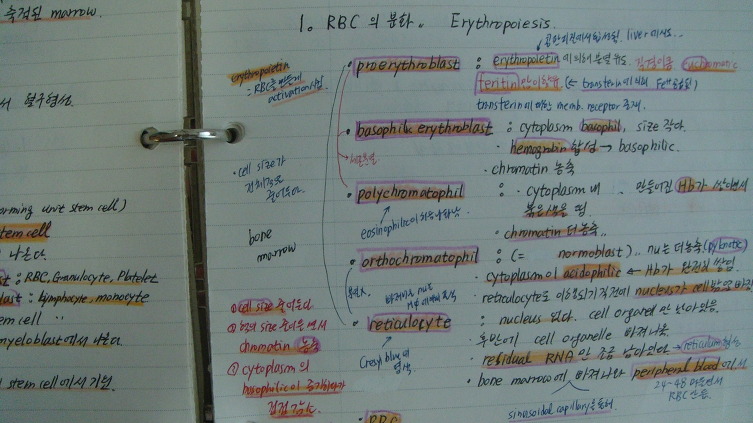 축적된 marrow.
서 혈구형성.
orming unit stem cell)
stem cell
나온다.
st : RBC, Granulocyte, Platelet
blast : lymphocyte, monocyte
em cell "
myeloblast에서 나온다.
stem cell에서 기원.
1. RBC의 분화.. Erythropoiesis.
erythropoietin
: RBC를 만들게
activation시킴.
• proerythroblast : erythropoietin에 의해 분열 유도. euchromatic
feritin만이 함유 (← transferin에 의해 Fe 공급됨)
transferin에 대한 memb. receptor 존재.
• basophilic erythroblast : cytoplasm basophil, size 작아.
• hemoglobin 합성 → basophilic.
• chromatin 농축
• polychromatophil : • cytoplasm 내 만들어진 Hb가 쌓이면서
붉은색을 띰.
eosinophilic이 처음 나타남
• chromatin 더 농축..
• cell size가
전체적으로
줄어든다.
bone
marrow
• orthochromatophil : (= normoblast).. nu는 더 농축 (pyknotic)
• cytoplasm이 acidophilic ← Hb가 완전히 쌓임.
• reticulocyte로 이행되기 직전에 nucleus가 cell 밖으로 빠져
• reticulocyte : nucleus 없다. cell organel만 남아있음.
Cresyl blue에
염색
• 후반에 cell organelle 빠져나옴
• residual RNA만 조금 남아있다 → reticulum 형성
• bone marrow에 빠져나와 peripheral blood에서
24~48 머물면서
RBC 만듦.
sinusoidal capillary를 통해
① cell size 줄어든다.
② 핵의 size 줄어들면서
chromatin 농축
③ cytoplasm의
basophilic이 증가하다가
점점 감소
• RBC